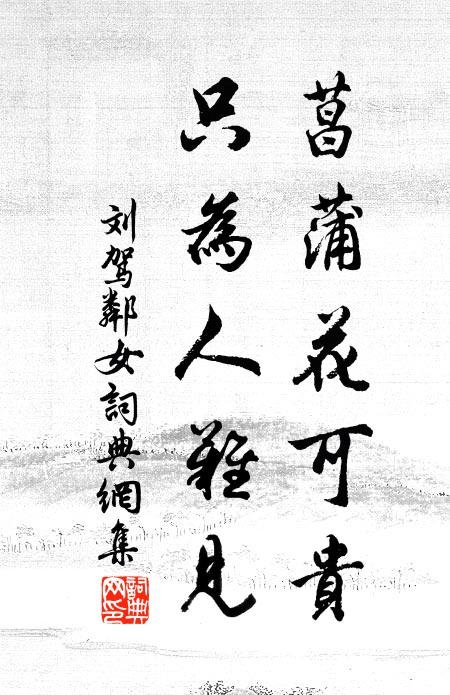 菖蒲花可貴
只為人難見
刘駕鄰女詞典網集
詞典
网印